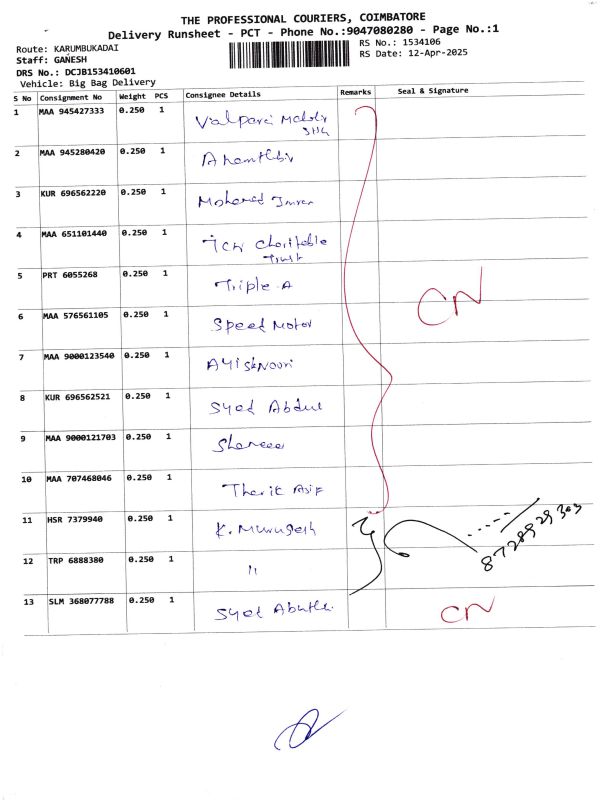 THE PROFESSIONAL COURIERS, COIMBATORE
Delivery Runsheet - PCT - Phone No.:9047080280 - Page No.:1
Route: KARUMBUKADAI
Staff: GANESH
DRS No.: DCJB153410601
Vehicle: Big Bag Delivery
RS No.: 1534106
RS Date: 12-Apr-2025
S No Consignment No Weight PCS Consignee Details Remarks Seal & Signature
1 MAA 945427333 0.250 1
2 MAA 945280420 0.250 1
3 KUR 696562220 0.250 1 Mohamed Imran
4 MAA 651101440 0.250 1 Charitable
Trust
5 PRT 6055268 0.250 1 Triple A
CN
6 MAA 576561105 0.250 1 Speed Motor
7 MAA 9000123540 0.250 1
8 KUR 696562521 0.250 1 Syed Abdul
9 MAA 9000121703 0.250 1
10 MAA 707468046 0.250 1 Tharik Asif
11 HSR 7379940 0.250 1 K. Murugesh
12 TRP 6888380 0.250 1 "
13 SLM 368077788 0.250 1 Syed
CN